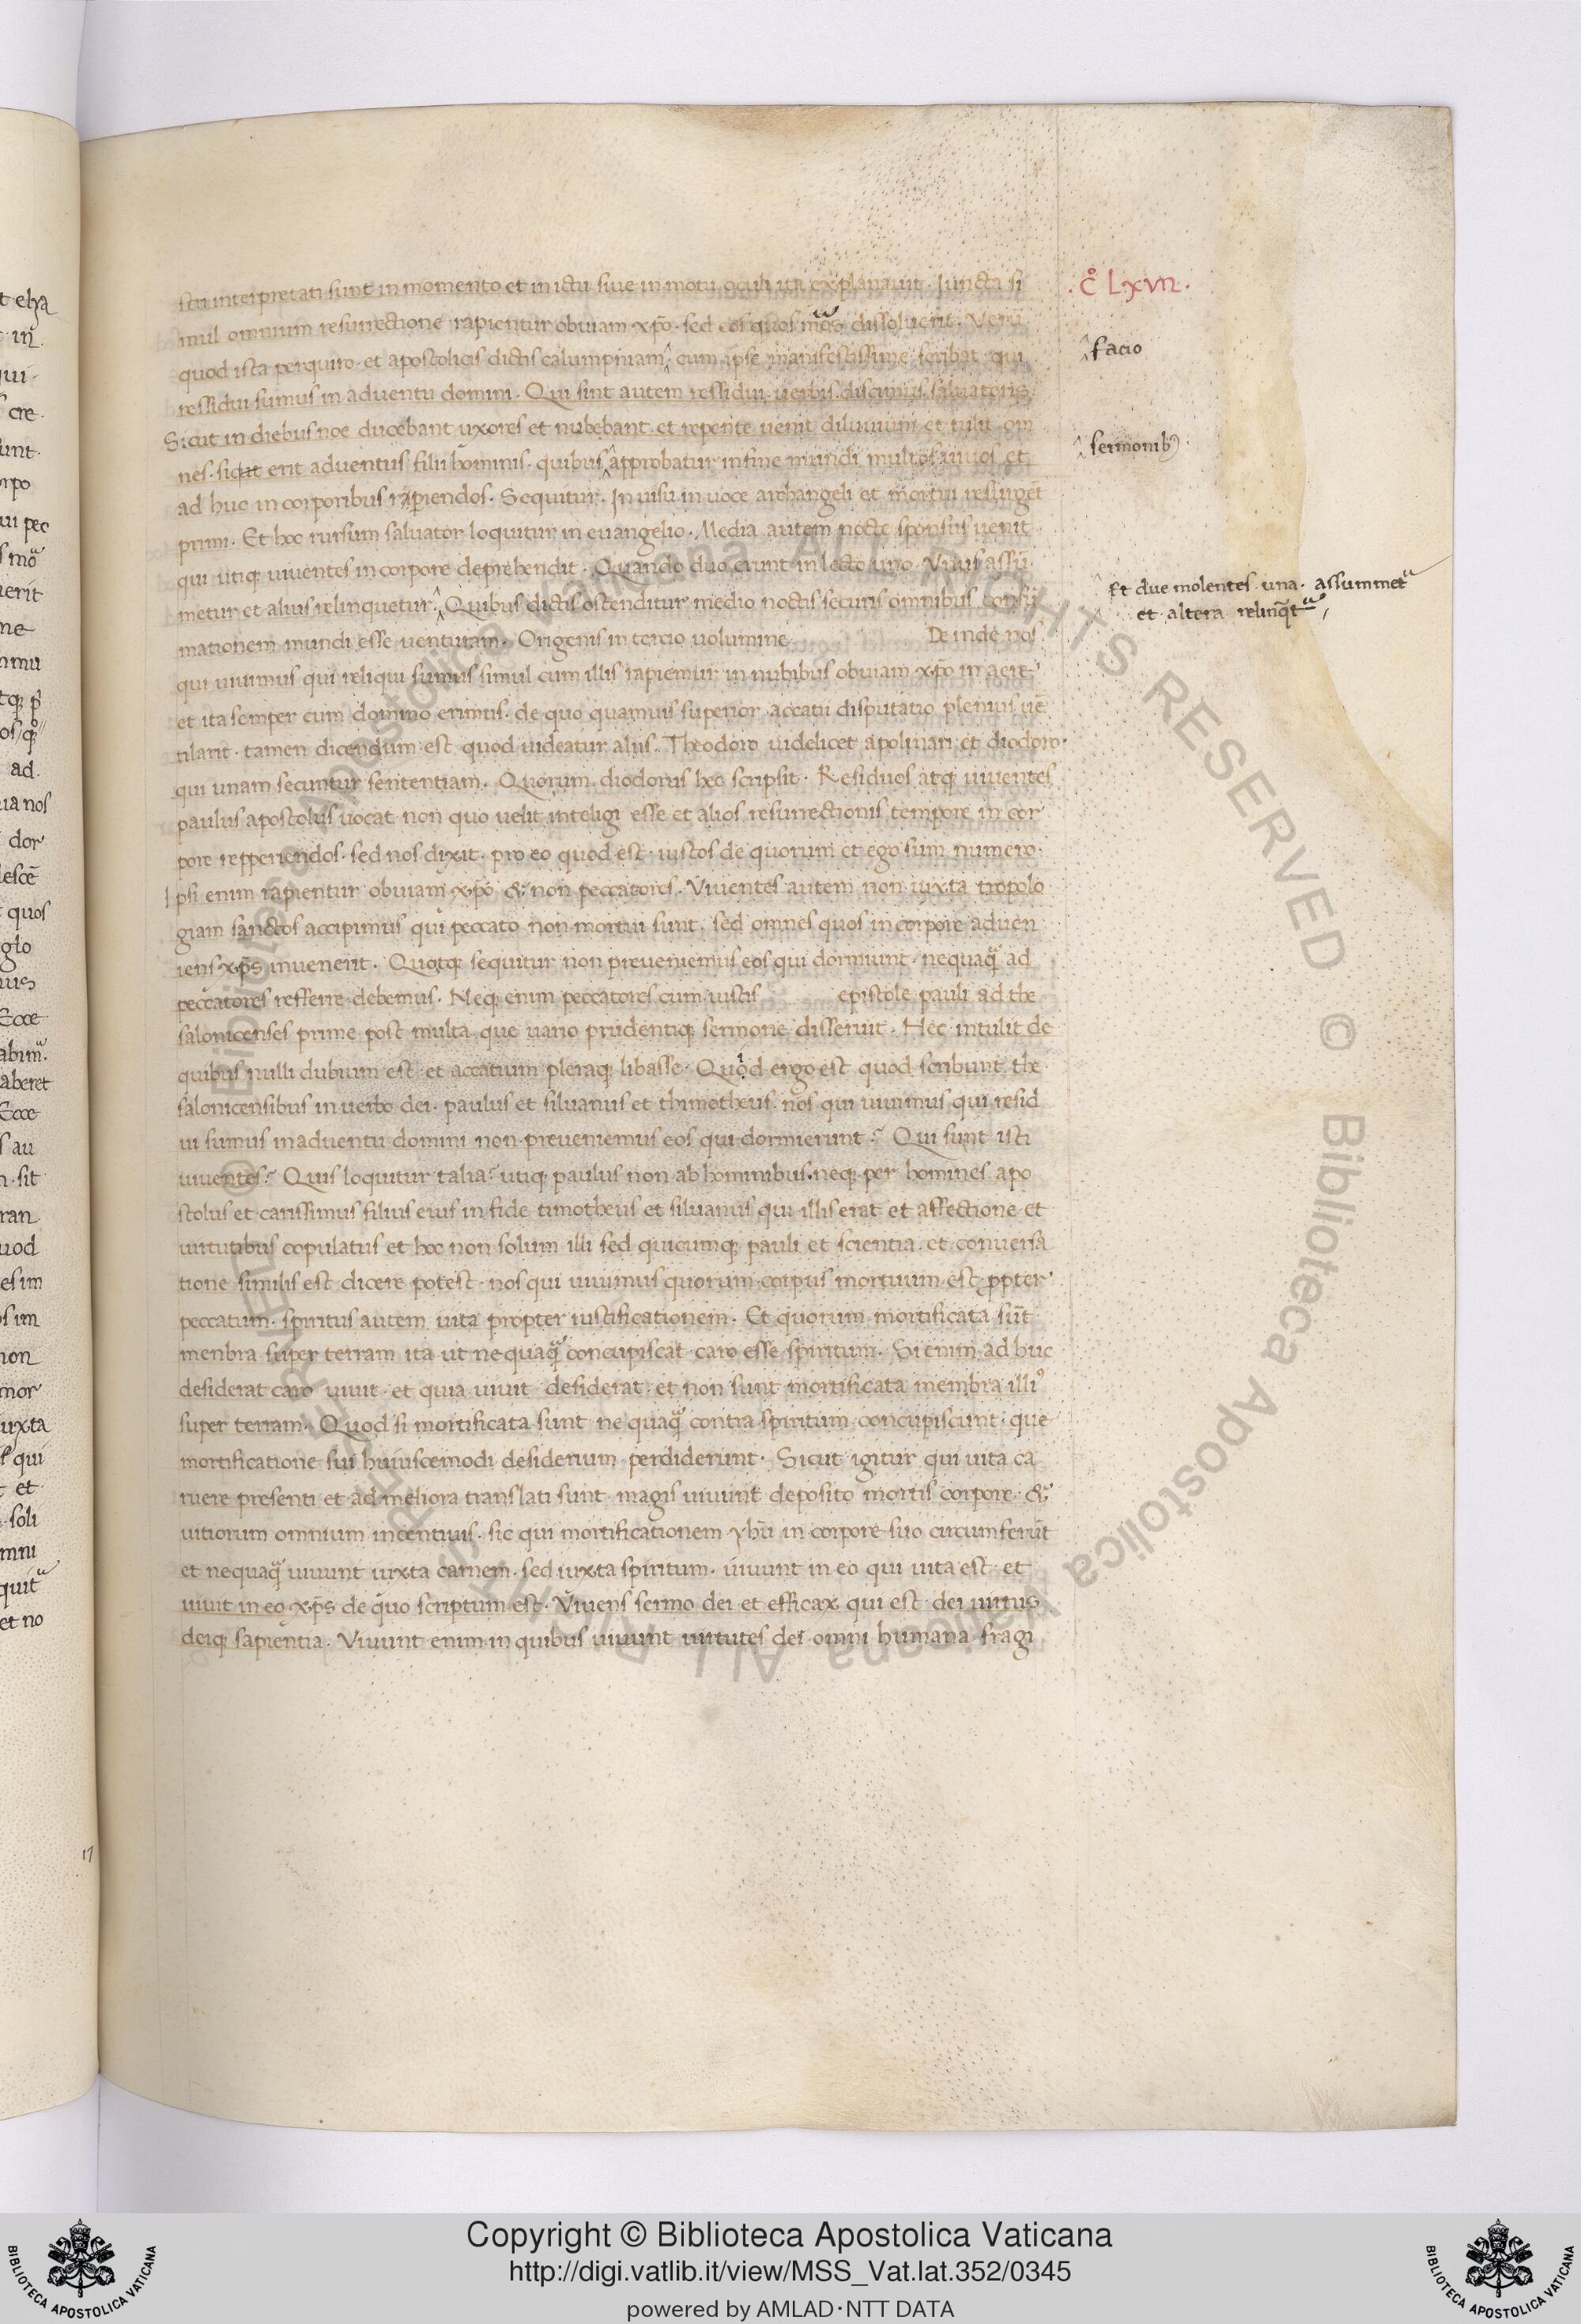 scti interpretati sunt in momento et in ictu siue in motu oculi ita explanauit. Iuncta si
mul omnium resurrectione rapientur obuiam xp̄o. sed eos quos mōs dissoluerit. Verū
quod ista perquiro. et apostolicis dictis calumpniam ‸ cum ipse manifestissime scribat qui
ressidui sumus in aduentu domini. Qui sint autem ressidui. uerbis discimus saluatoris
Sicut in diebus noe ducebant uxores et nubebant. et repente uenit diluuium et tulit om
nes. sicut erit aduentus filii hominis. quibus ‸ approbatur in fine mundi multos uiuos et
ad huc in corporibus rapiendos. Sequitur. In uisu in uoce archangeli et mortui resurgēt
primi. Et hoc rursum saluator loquitur in euangelio. Media autem nocte sponsus uenit
qui utiq; uiuentes in corpore deprehendit. Quando duo erunt in lecto uno. Vnus assū
metur et alius relinquetur. ‸ Quibus dictis ostenditur medio noctis securis omnibus consū
mationem mundi esse uenturam. Origenis in tercio uolumine De inde nos
qui uiuimus qui reliqui sumus simul cum illis rapiemur in nubibus obuiam xp̄o in aere
et ita semper cum domino erimus. de quo quamuis superior accatii disputatio plenius uē
tilarit. tamen dicendum est quod uideatur aliis. Theodoro uidelicet apolinari et diodoro.
qui unam secuntur sententiam. Quorum diodorus hec scripsit. Residuos atq; uiuentes
paulus apostolus uocat non quo uelit inteligi esse et alios resurrectionis tempore in cor
pore repperiendos. sed nos dixit. pro eo quod est. iustos de quorum et ego sum numero.
Ipsi enim rapientur obuiam xp̄o & non peccatores. Viuentes autem non iuxta tropolo
giam sanctos accipimus qui peccato non mortui sunt. sed omnes quos in corpore aduen
iens xp̄s inuenerit. Quotq; sequitur non preueniemus eos qui dormiunt. nequaq̄ ad
peccatores refferre debemus. Neq; enim peccatores cum iustis epistole pauli ad the
salonicenses prime post multa que uario prudentiq; sermone disseruit. Hec intulit de
quibus nulli dubium est. et accatium pleraq; libasse. Quod ergo est quod scribunt the
salonicensibus in uerbo dei. paulus et siluanus et thimotheus. nos qui uiuimus qui resid
ui sumus in aduentu domini non preueniemus eos qui dormierunt? Qui sunt isti
uiuentes? Quis loquitur talia? utiq; paulus non ab hominibus neq; per homines apo
stolus et carissimus filius eius in fide timotheus et siluanus qui illis erat et affectione et
uirtutibus copulatus et hoc non solum illi sed quicumq; pauli et scientia. et conuersa
tione similis est dicere potest. nos qui uiuimus quorum corpus mortuum est ꝓpter
peccatum. spiritus autem uita propter iustificationem. Et quorum mortificata sūt
menbra super terram ita ut ne quaq̄ concupiscat caro esse spiritum. Si enim ad huc
desiderat caro uiuit. et quia uiuit desiderat. et non sunt mortificata membra illiꝰ
super terram. Quod si mortificata sunt ne quaq̄ contra spiritum concupiscunt. que
mortificatione sui huiuscemodi desiderium perdiderunt. Sicut igitur qui uita ca
ruere presenti et ad meliora translati sunt magis uiuunt deposito mortis corpore. &
uitiorum omnium incentiuis. sic qui mortificationem yhū in corpore suo circumferūt
et nequaq̄ uiuunt iuxta carnem. sed iuxta spiritum. uiuunt in eo qui uita est. et
uiuit in eo xp̄s de quo scriptum est. Viuens sermo dei et efficax qui est dei uirtus
deiq; sapientia. Viuunt enim in quibus uiuunt uirtutes dei omni humana fragi
.C̊ LXVII.
‸ facio
‸ sermonibꝫ
‸ Et due molentes. una. assummet᷑
et altera relinq̄t᷑
17
Copyright © Biblioteca Apostolica Vaticana
http://digi.vatlib.it/view/MSS_Vat.lat.352/0345
powered by AMLAD·NTT DATA
BIBLIOTECA APOSTOLICA VATICANA
BIBLIOTECA APOSTOLICA VATICANA